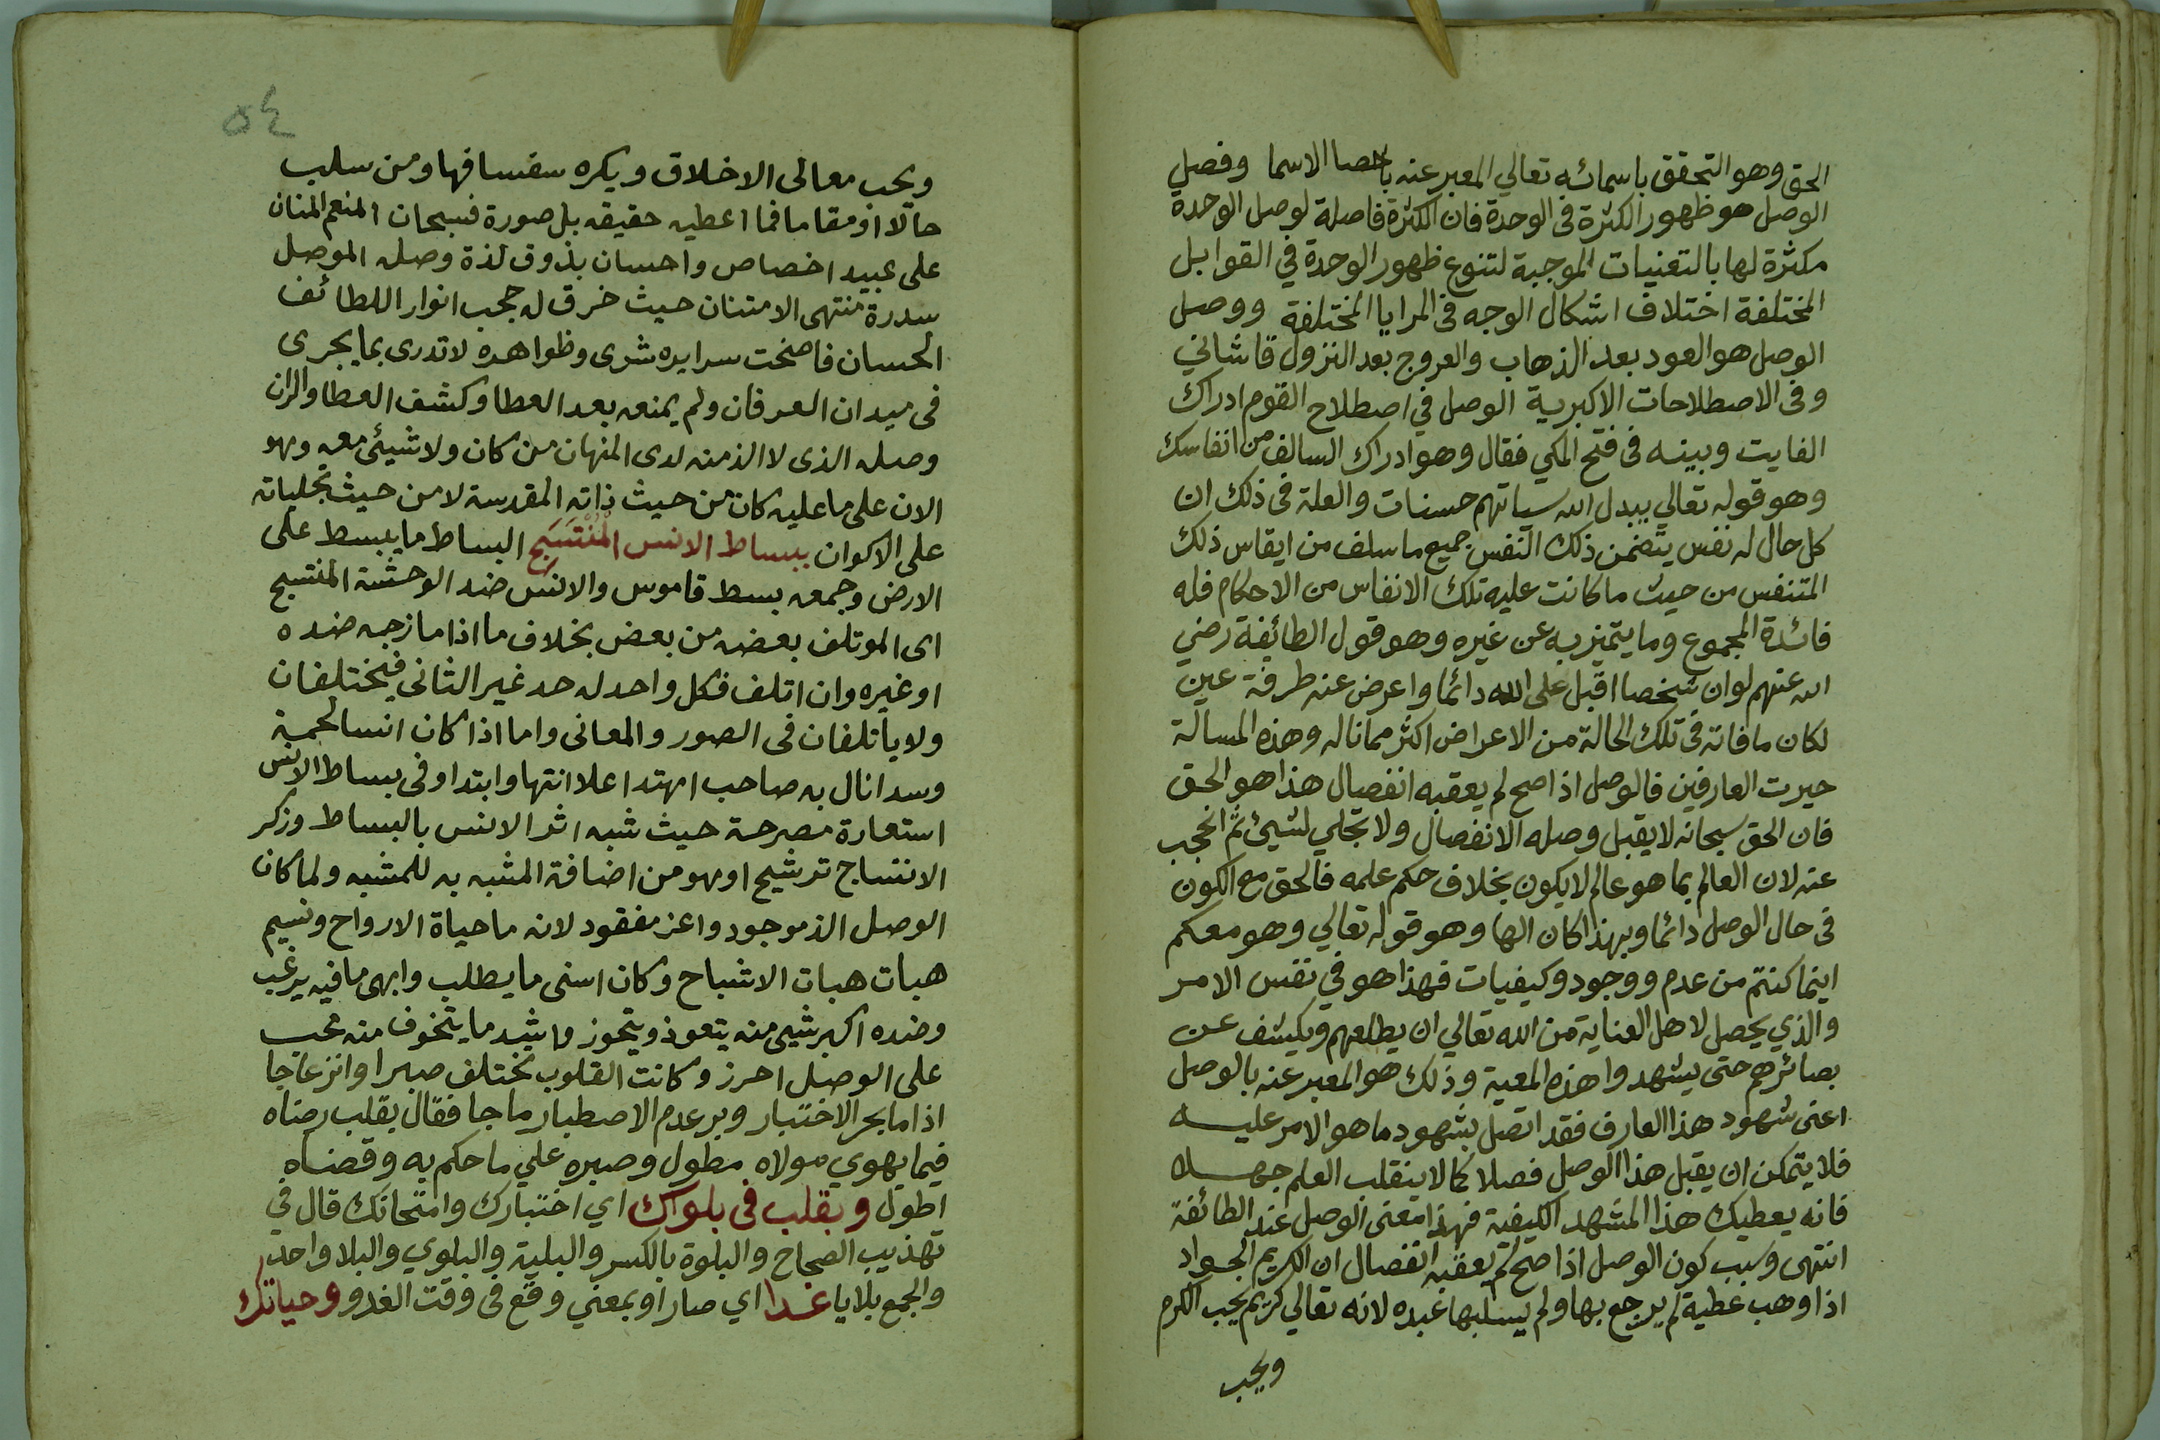 الحق وهو التحقق باسمائه تعالي المعبر عنه باحصا الاسما وفصل
الوصل هو ظهور الكثرة فى الوحدة فان الكثرة فاصلة لوصل الوحدة
مكثرة لها بالتعنيات الموجبة لتنوع ظهور الوحدة في القوابل
المختلفة اختلاف اشكال الوجه فى المرايا المختلفة ووصل
الوصل هو العود بعد الذهاب والعروج بعد النزول قاشاني
وفى الاصطلاحات الاكبرية الوصل في اصطلاح القوم ادراك
الفايت وبينه فى فتح المكي فقال وهو ادراك السالف من انفاسك
وهو قوله تعالي يبدل الله سياتهم حسنات والعلة فى ذلك ان
كل حال له نفس يتضمن ذلك النفس جميع ما سلف من انفاس ذلك
المتنفس من حيث ما كانت عليه تلك الانفاس من الاحكام فله
فائدة المجموع وما يتميز به عن غيره وهو قول الطائفة رضي
الله عنهم لو ان شخصا اقبل على الله دائما واعرض عنه طرفة عين
لكان ما فاته فى تلك الحالة من الاعراض اكثر مما ناله وهذه المسالة
حيرت العارفين فالوصل اذا صح لم يعقبه انفصال هذا هو الحق
فان الحق سبحانه لا يقبل وصله الانفصال ولا تجلي لشيئ ثم انحجب
عنه لان العالم بما هو عالم لا يكون بخلاف حكم علمه فالحق مع الكون
فى حال الوصل دائما وبهذا كان الها وهو قوله تعالي وهو معكم
اينما كنتم من عدم ووجود وكيفيات فهذا هو في نفس الامر
والذي يحصل لاهل العناية من الله تعالي ان يطلعهم ويكشف عن
بصائرهم حتى يشهدوا هذه المعية وذلك هو المعبر عنه بالوصل
اعنى شهود هذا العارف فقد اتصل بشهود ما هو الامر عليه
فلا يتمكن ان يقبل هذا الوصل فصلا كما لا ينقلب العلم جهلا
فانه يعطيك هذا المشهد الكيفية فهذا معنى الوصل عند الطائفة
انتهى وسبب كون الوصل اذا صح لم يعقبه انفصال ان الكريم الجواد
اذا وهب عطية لم يرجع بها ولم يسلبها عبده لانه تعالي كريم يحب الكرم
ويحب
٥٤
ويحب معالى الاخلاق ويكره سفسافها ومن سلب
حالا او مقاما فما اعطيه حقيقه بل صورة فسبحان المنعم المنان
على عبيد اخصاص واحسان بذوق لذة وصله الموصل
سدرة منتهى الامتنان حيث خرق له حجب انوار اللطائف
الحسان فاضحت سرايره شرى وظواهره لا تدرى بما يجرى
فى ميدان العرفان ولم يمنعه بعد العطا وكشف الغطا والران
وصله الذى لا الذ منه لدى المنهان من كان ولا شيئ معه وهو
الان على ما عليه كان من حيث ذاته المقدسة لا من حيث تجلياته
على الاكوان ببساط الانس المُنْتَسَج البساط ما يبسط على
الارض وجمعه بسط قاموس والانس ضد الوحشة المنتسج
اى الموتلف بعضه من بعض بخلاف ما اذا مازجه ضده
او غيره وان اتلف فكل واحد له حد غير الثانى فيختلفان
ولا ياتلفان فى الصور والمعانى واما اذا كان انسا لحمة
وسدا نال به صاحب اهتدا علا انتها وابتدا وفى بساط الانس
استعارة مصرحة حيث شبه اثر الانس بالبساط وزكر
الانتساج ترشيح او هو من اضافة المشبه به للمشبه ولما كان
الوصل الذ موجود واعز مفقود لانه ما حياة الارواح ونسيم
هبات هبات الاشباح وكان اسنى ما يطلب وابهى ما فيه يرغب
وضده اكبر شيى منه يتعوذ ويتحوز واشد ما يتخوف منه محب
على الوصل احرز وكانت القلوب تختلف صبرا وانزعاجا
اذا ما بحر الاختبار وبر عدم الاصطبار ماجا فقال بقلب رضاه
فيما يهوي مولاه مطول وصبره علي ما حكم به وقضاه
اطول وبقلب فى بلواك اي اختبارك وامتحانك قال في
تهذيب الصحاح والبلوة بالكسر والبلية والبلوي والبلا واحد
والجمع بلايا غدا اي صار او بمعني وقع فى وقت الغدو وحياتك